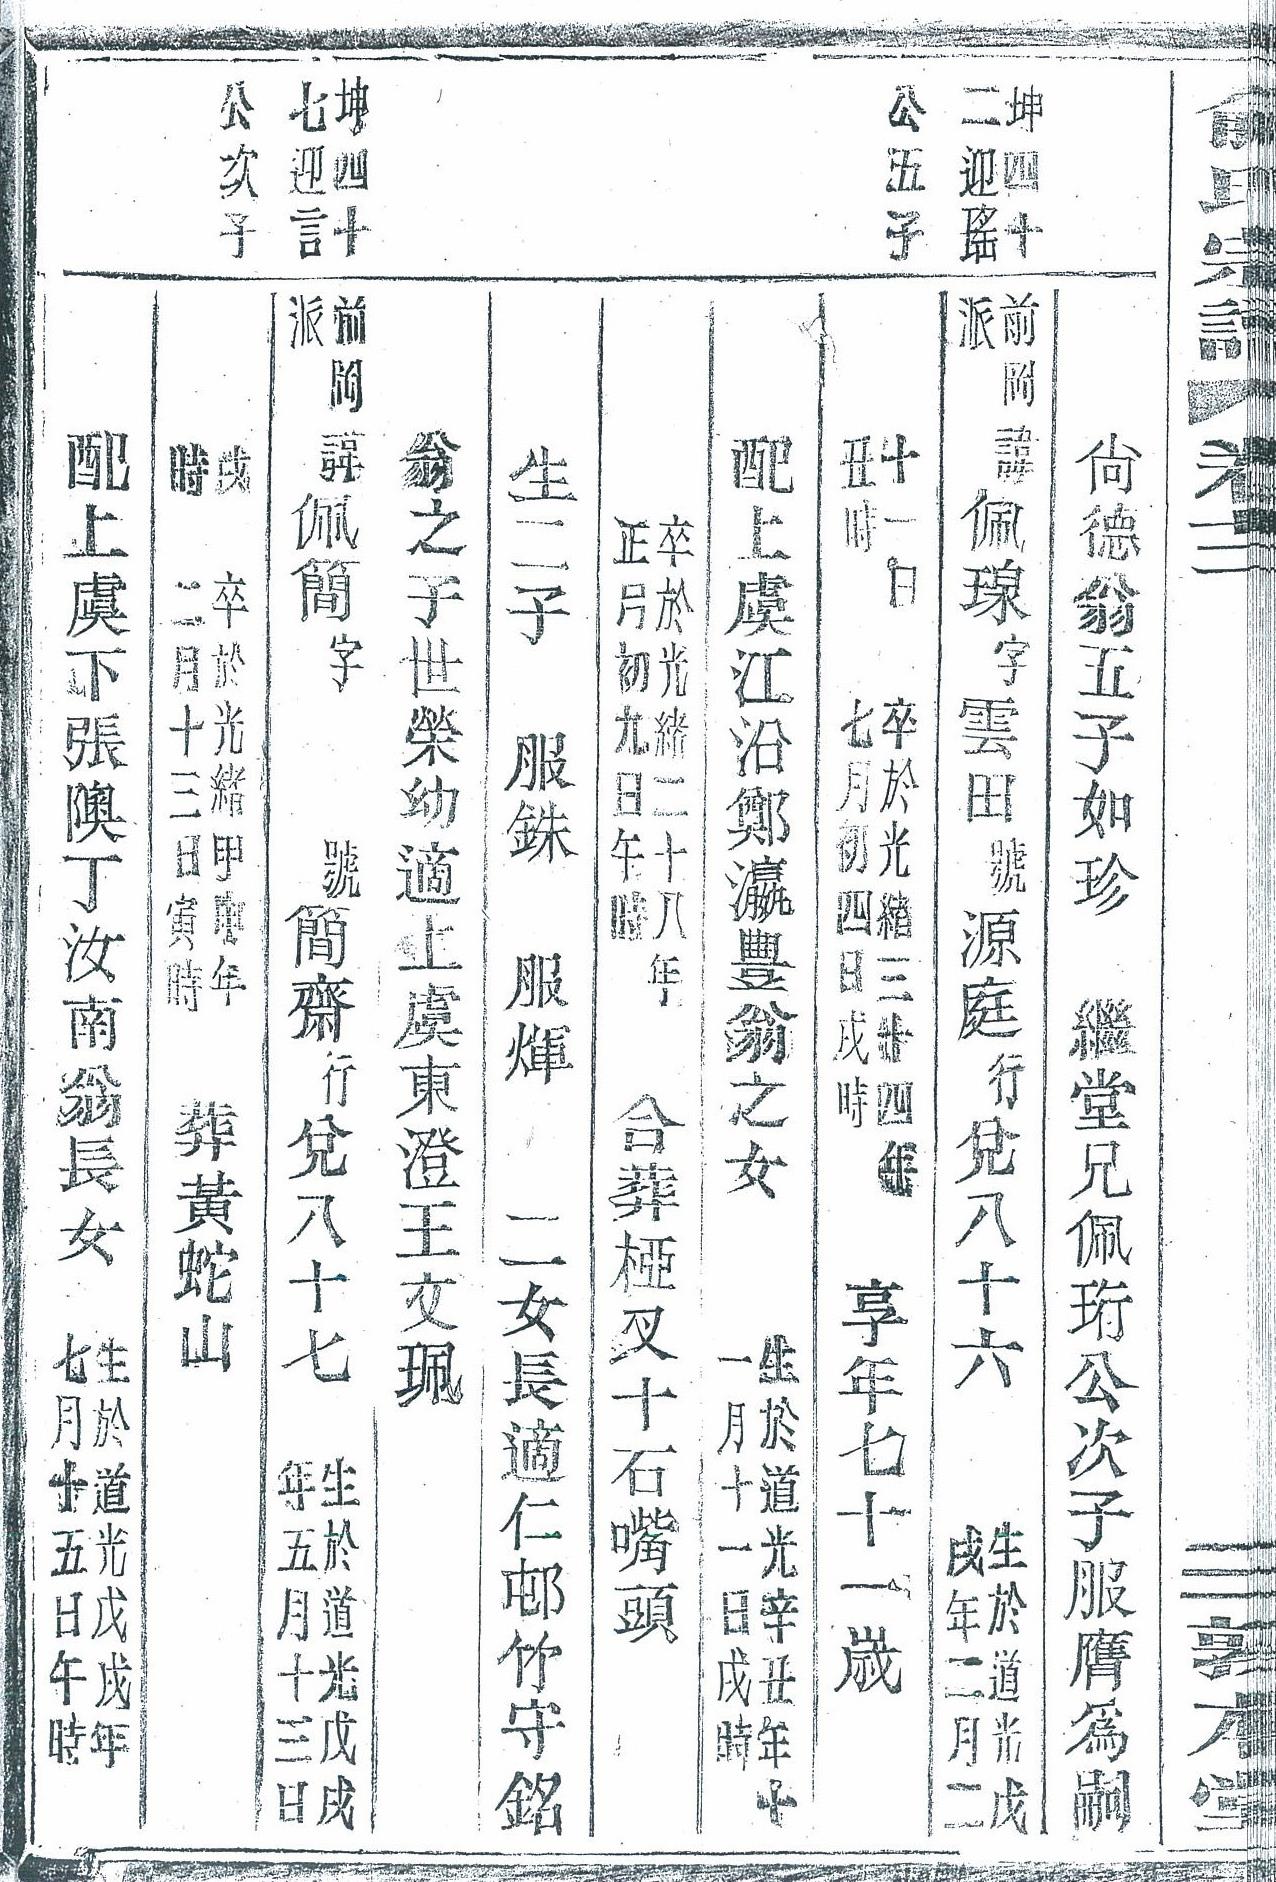 俞氏宗譜 卷二 敦本堂
尙德翁五子如珍 繼堂兄佩珩公次子服膺為嗣
坤四十二迎瑤公五子
前岡派 諱佩瑔字雲田號源庭行兌八十六 生於道光戊戌年二月二
十一日丑時 卒於光緒三十四年七月初四日戌時 享年七十一歲
配上虞江沿鄭瀛豐翁之女 生於道光辛丑年十一月十一日戌時
卒於光緒二十八年正月初九日午時 合葬椏叉十石嘴頭
生二子 服銖 服煇 二女長適仁邨竹守銘
翁之子世榮幼適上虞東澄王文珮
坤四十七迎言公次子
前岡派 諱佩簡字 號簡齋行兌八十七 生於道光戊戌年五月十三日
戌時 卒於光緒甲申年二月十三日寅時 葬黃蛇山
配上虞下張隩丁汝南翁長女 生於道光戊戌年七月十五日午時